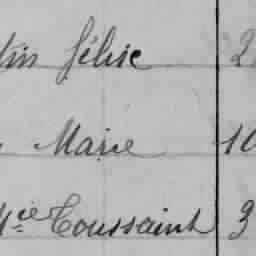 tin Félise 2
Marie 10
Mie Toussaint 3